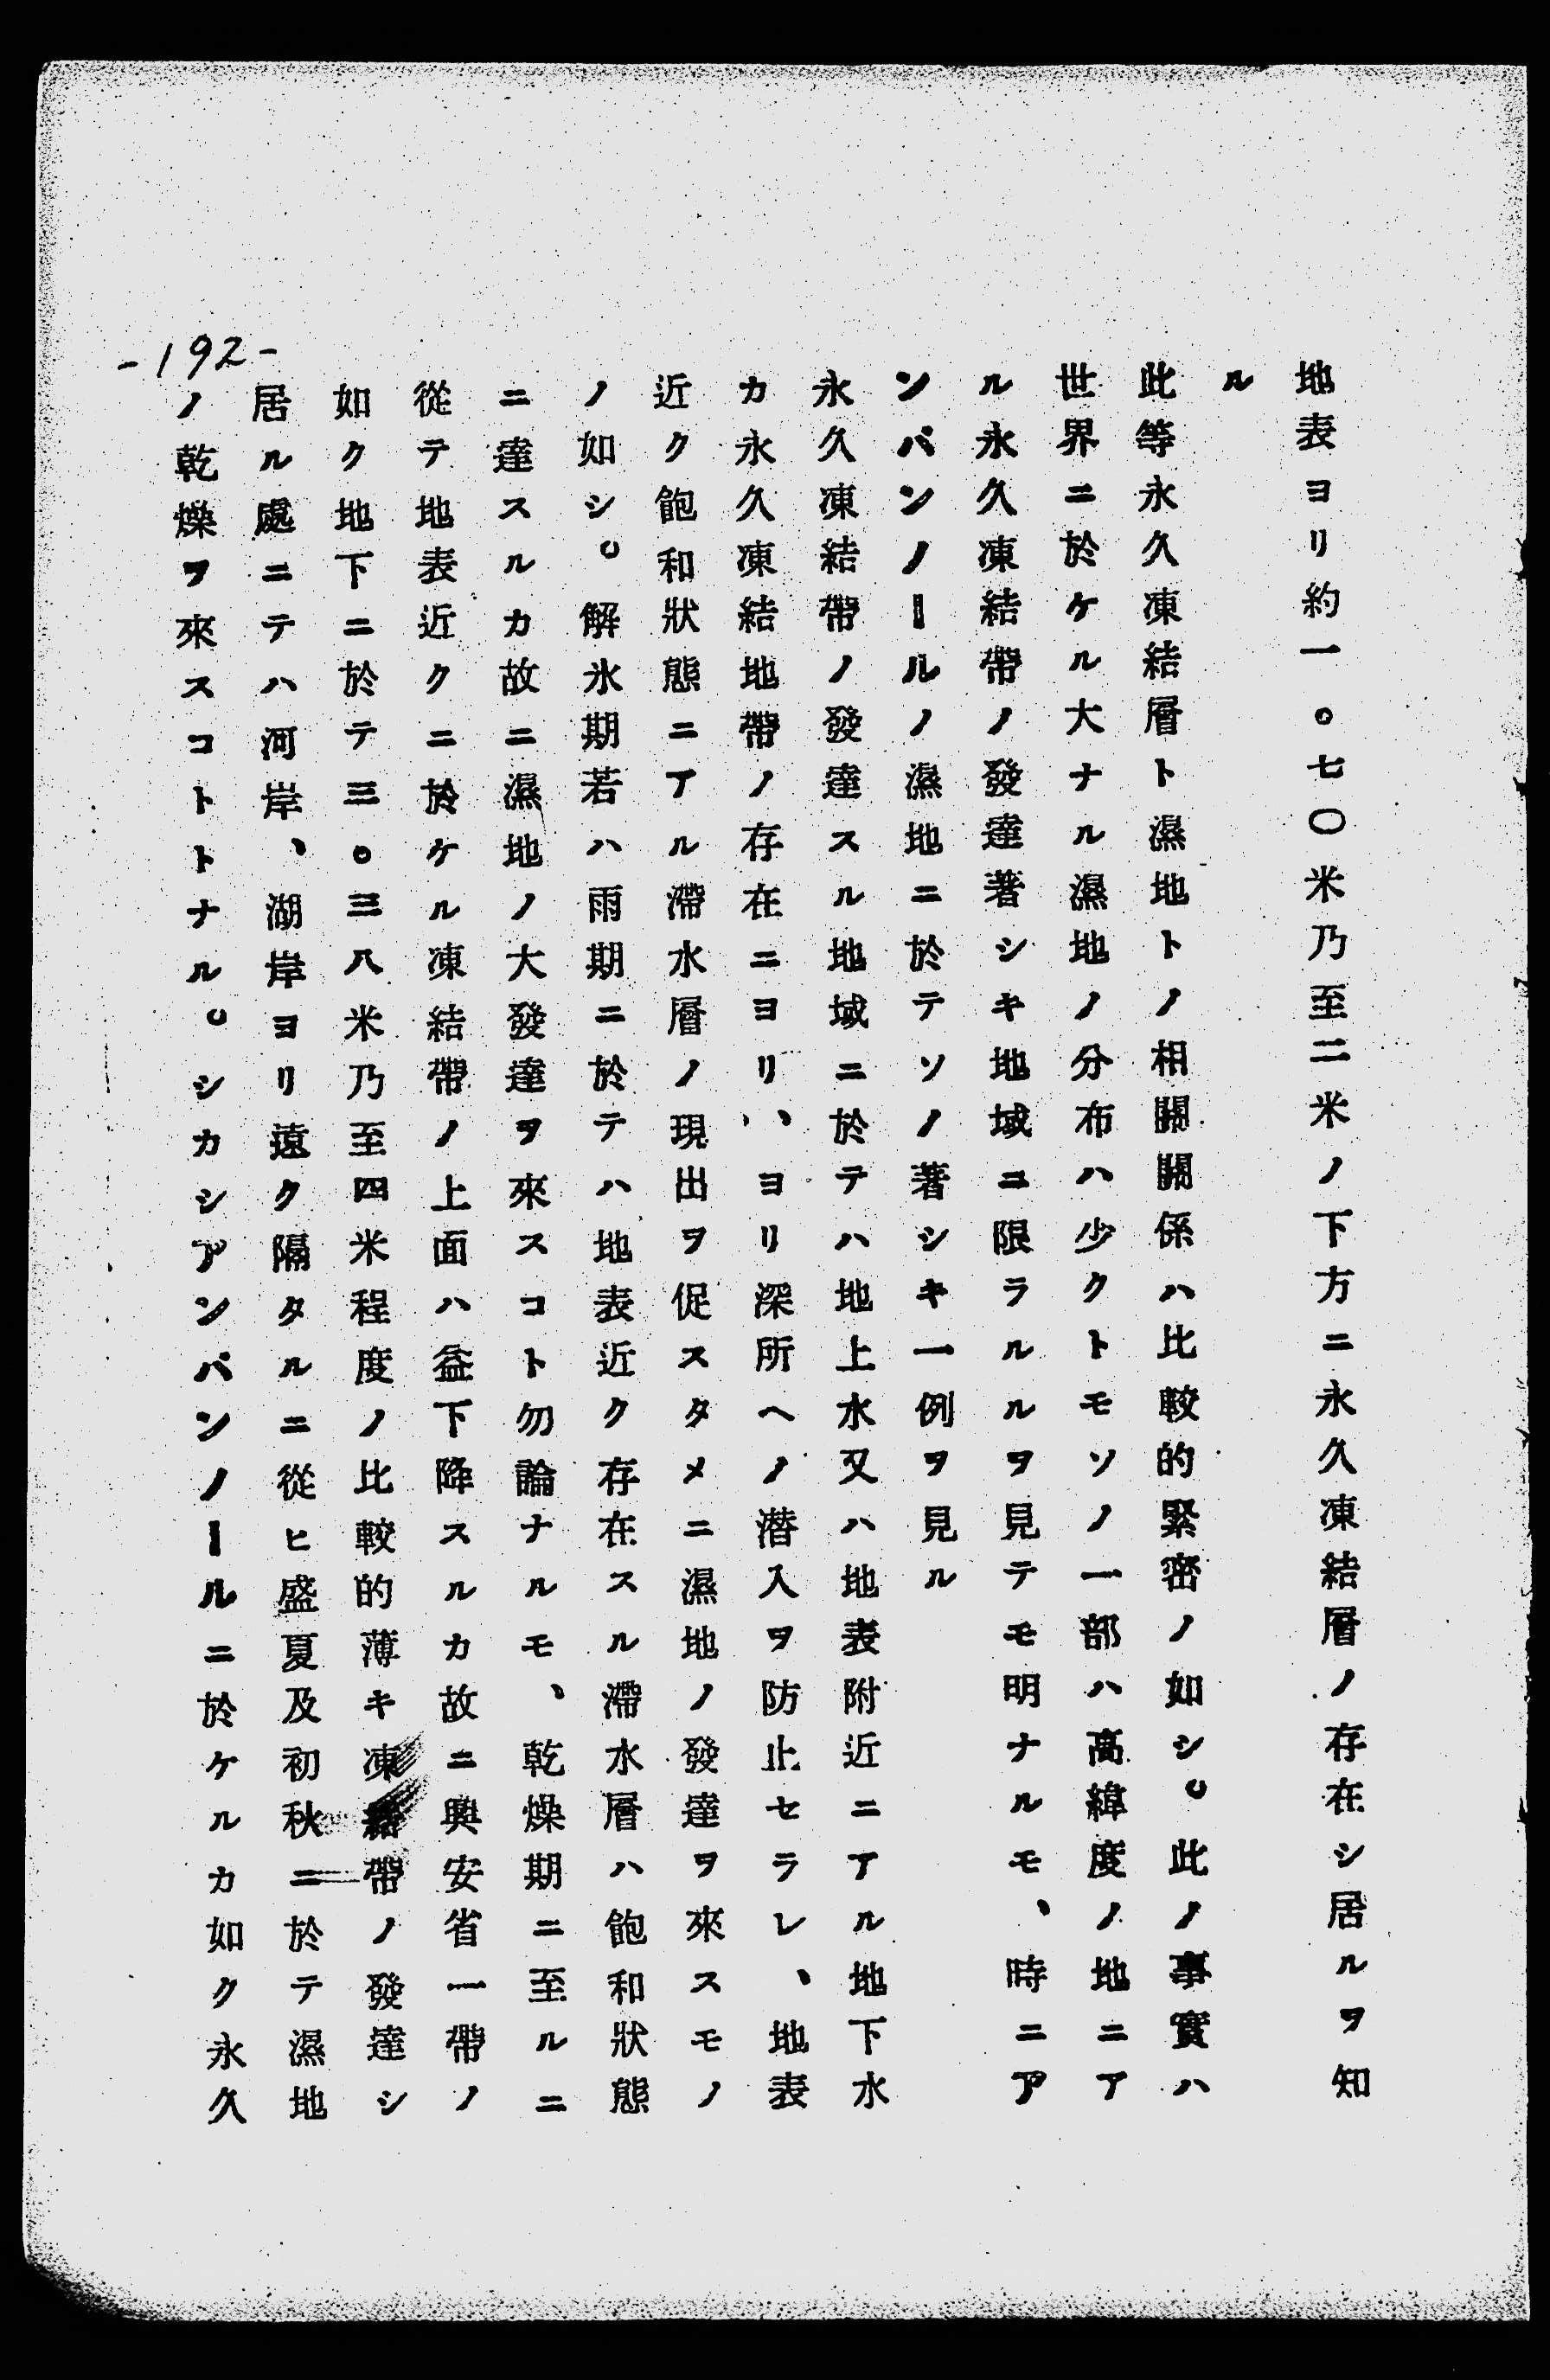 地表ヨリ約一。七〇米乃至二米ノ下方ニ永久凍結層ノ存在シ居ルヲ知
ル
此等永久凍結層ト濕地トノ相關關係ハ比較的緊密ノ如シ。此ノ事實ハ
世界ニ於ケル大ナル濕地ノ分布ハ少クトモソノ一部ハ高緯度ノ地ニア
ル永久凍結帶ノ發達著シキ地域ニ限ラルルヲ見テモ明ナルモ、時ニア
ンバンノールノ濕地ニ於テソノ著シキ一例ヲ見ル
永久凍結帶ノ發達スル地域ニ於テハ地上水又ハ地表附近ニアル地下水
カ永久凍結地帶ノ存在ニヨリ、ヨリ深所ヘノ潜入ヲ防止セラレ、地表
近ク飽和狀態ニアル滯水層ノ現出ヲ促スタメニ濕地ノ發達ヲ來スモノ
ノ如シ。解氷期若ハ雨期ニ於テハ地表近ク存在スル滯水層ハ飽和狀態
ニ達スルカ故ニ濕地ノ大發達ヲ來スコト勿論ナルモ、乾燥期ニ至ルニ
從テ地表近クニ於ケル凍結帶ノ上面ハ益下降スルカ故ニ興安省一帶ノ
如ク地下ニ於テ三。三八米乃至四米程度ノ比較的薄キ凍結帶ノ發達シ
居ル處ニテハ河岸、湖岸ヨリ遠ク隔タルニ從ヒ盛夏及初秋ニ於テ濕地
ノ乾燥ヲ來スコトトナル。シカシアンバンノールニ於ケルカ如ク永久
-192-